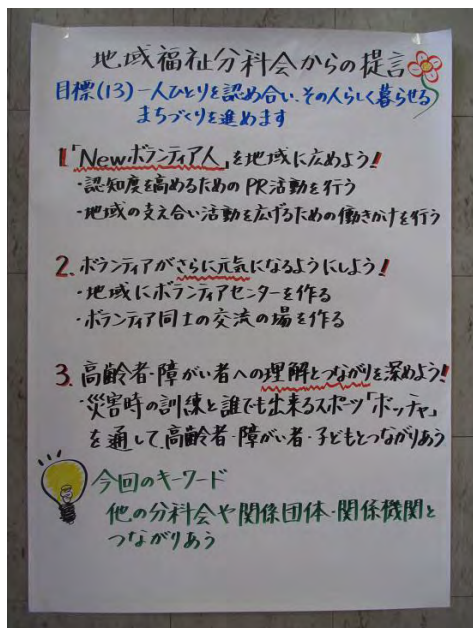 地域福祉分科会からの提言
目標(13)一人ひとりを認め合い、その人らしく暮らせる
まちづくりを進めます
1.「Newボランティア人」を地域に広めよう!
・認知度を高めるためのPR活動を行う
・地域の支え合い活動を広げるための働きかけを行う
2.ボランティアがさらに元気になるようにしよう!
・地域にボランティアセンターを作る
・ボランティア同士の交流の場を作る
3.高齢者・障がい者への理解とつながりを深めよう!
・災害時の訓練と誰でも出来るスポーツ「ボッチャ」
を通して、高齢者・障がい者・子どもとつながりあう
今回のキーワード
他の分科会や関係団体・関係機関と
つながりあう